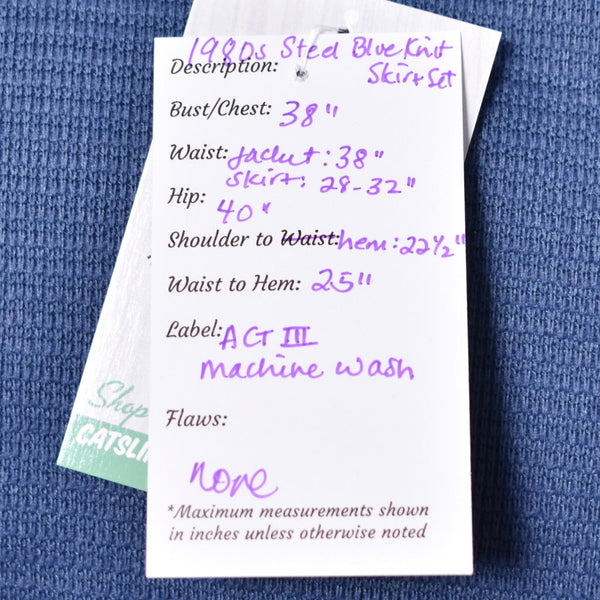 1980s Steel Blue Knit
Description: Skirt Set
Bust/Chest: 38"
Waist: Jacket: 38"
Skirt: 28-32"
Hip: 40"
Shoulder to Waist: hem: 22 1/2"
Waist to Hem: 25"
Label: ACT III
Machine wash
Flaws:
None
*Maximum measurements shown
in inches unless otherwise noted
Shop